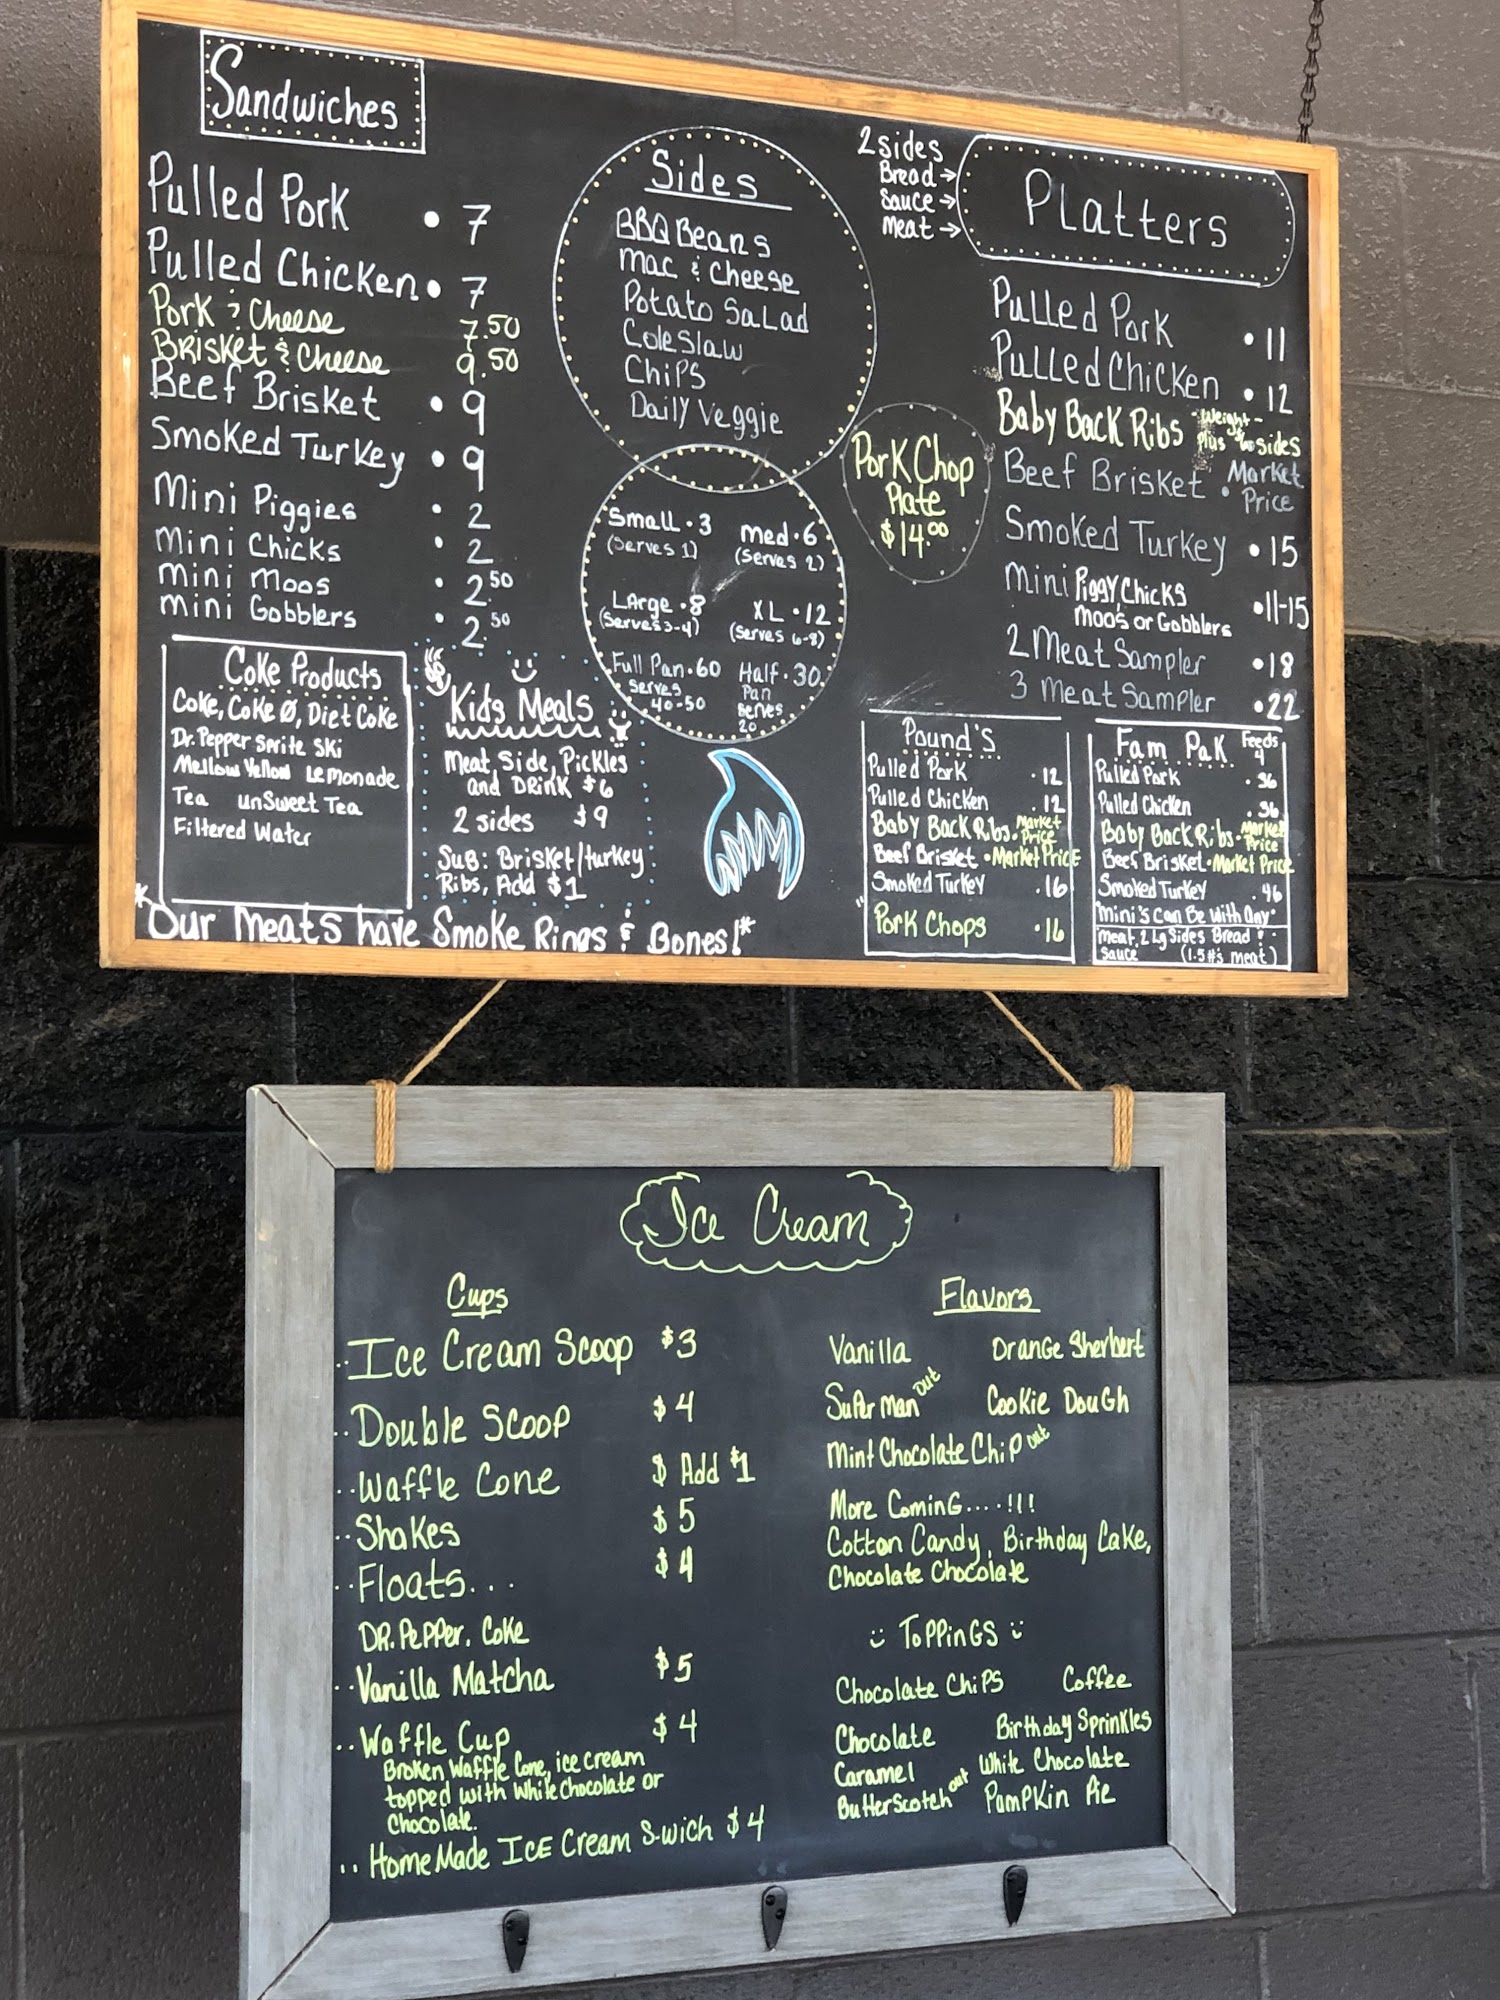 Sandwiches
Pulled Pork • 7
Pulled Chicken • 7
Pork & Cheese 7.50
Brisket & Cheese 9.50
Beef Brisket • 9
Smoked Turkey • 9
Mini Piggies • 2
Mini Chicks • 2
Mini Moos • 2.50
Mini Gobblers • 2.50
Coke Products
Coke, Coke Ø, Diet Coke
Dr. Pepper Sprite Ski
Mellow Yellow Lemonade
Tea unSweet Tea
Filtered Water
Kids Meals
Meat, Side, Pickles
and Drink $6
2 sides $9
Sub: Brisket/turkey
Ribs, Add $1
*Our Meats have Smoke Rings & Bones!*
Sides
BBQ Beans
Mac & Cheese
Potato Salad
Coleslaw
Chips
Daily Veggie
Small • 3 Med • 6
(Serves 1) (Serves 2)
LArge • 8 XL • 12
(Serves 3-4) (Serves 6-8)
Full Pan • 60 Half • 30
Serves Pan
40-50 Serves
20
Pork Chop
Plate
$14.00
2 sides
Bread →
Sauce →
Meat →
Platters
Pulled Pork • 11
Pulled Chicken • 12
Baby Back Ribs Weight -
Plus sides
Beef Brisket • Market
Price
Smoked Turkey • 15
Mini Piggy Chicks
Moo's or Gobblers • 11-15
2 Meat Sampler • 18
3 Meat Sampler • 22
Pound's
Pulled Pork • 12
Pulled Chicken • 12
Baby Back Ribs • Market
Price
Beef Brisket • Market Price
Smoked Turkey • 16
Pork Chops • 16
Fam Pak Feeds
4
Pulled Pork • 36
Pulled Chicken • 36
Baby Back Ribs • Market
Price
Beef Brisket • Market Price
Smoked Turkey • 46
"Mini's Can Be With Any"
Meat, 2 Lg Sides Bread &
Sauce (1.5 #'s meat)
Ice Cream
Cups
..Ice Cream Scoop $3
..Double Scoop $4
..Waffle Cone $ Add $1
..Shakes $5
..Floats... $4
DR. Pepper. Coke
..Vanilla Matcha $5
..Waffle Cup $4
Broken Waffle Cone, ice cream
topped with White Chocolate or
Chocolate.
..HomeMade ICE Cream S-wich $4
Flavors
Vanilla Orange Sherbert
Superman out Cookie Dough
Mint Chocolate Chip out
More Coming....!!!
Cotton Candy, Birthday Cake,
Chocolate Chocolate
Toppings
Chocolate Chips Coffee
Chocolate Birthday Sprinkles
Caramel White Chocolate
Butterscotch out Pumpkin Pie